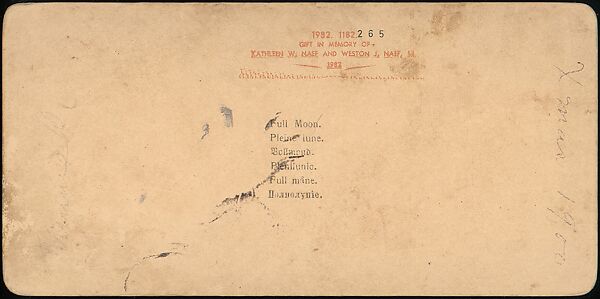 1982. 1182.265
GIFT IN MEMORY OF
KATHLEEN W. NAEF AND WESTON J. NAEF, SR.
1982
Full Moon.
Pleine lune.
Vollmond.
Plenilunio.
Full måne.
Полнолуніе.
Xmas 1900